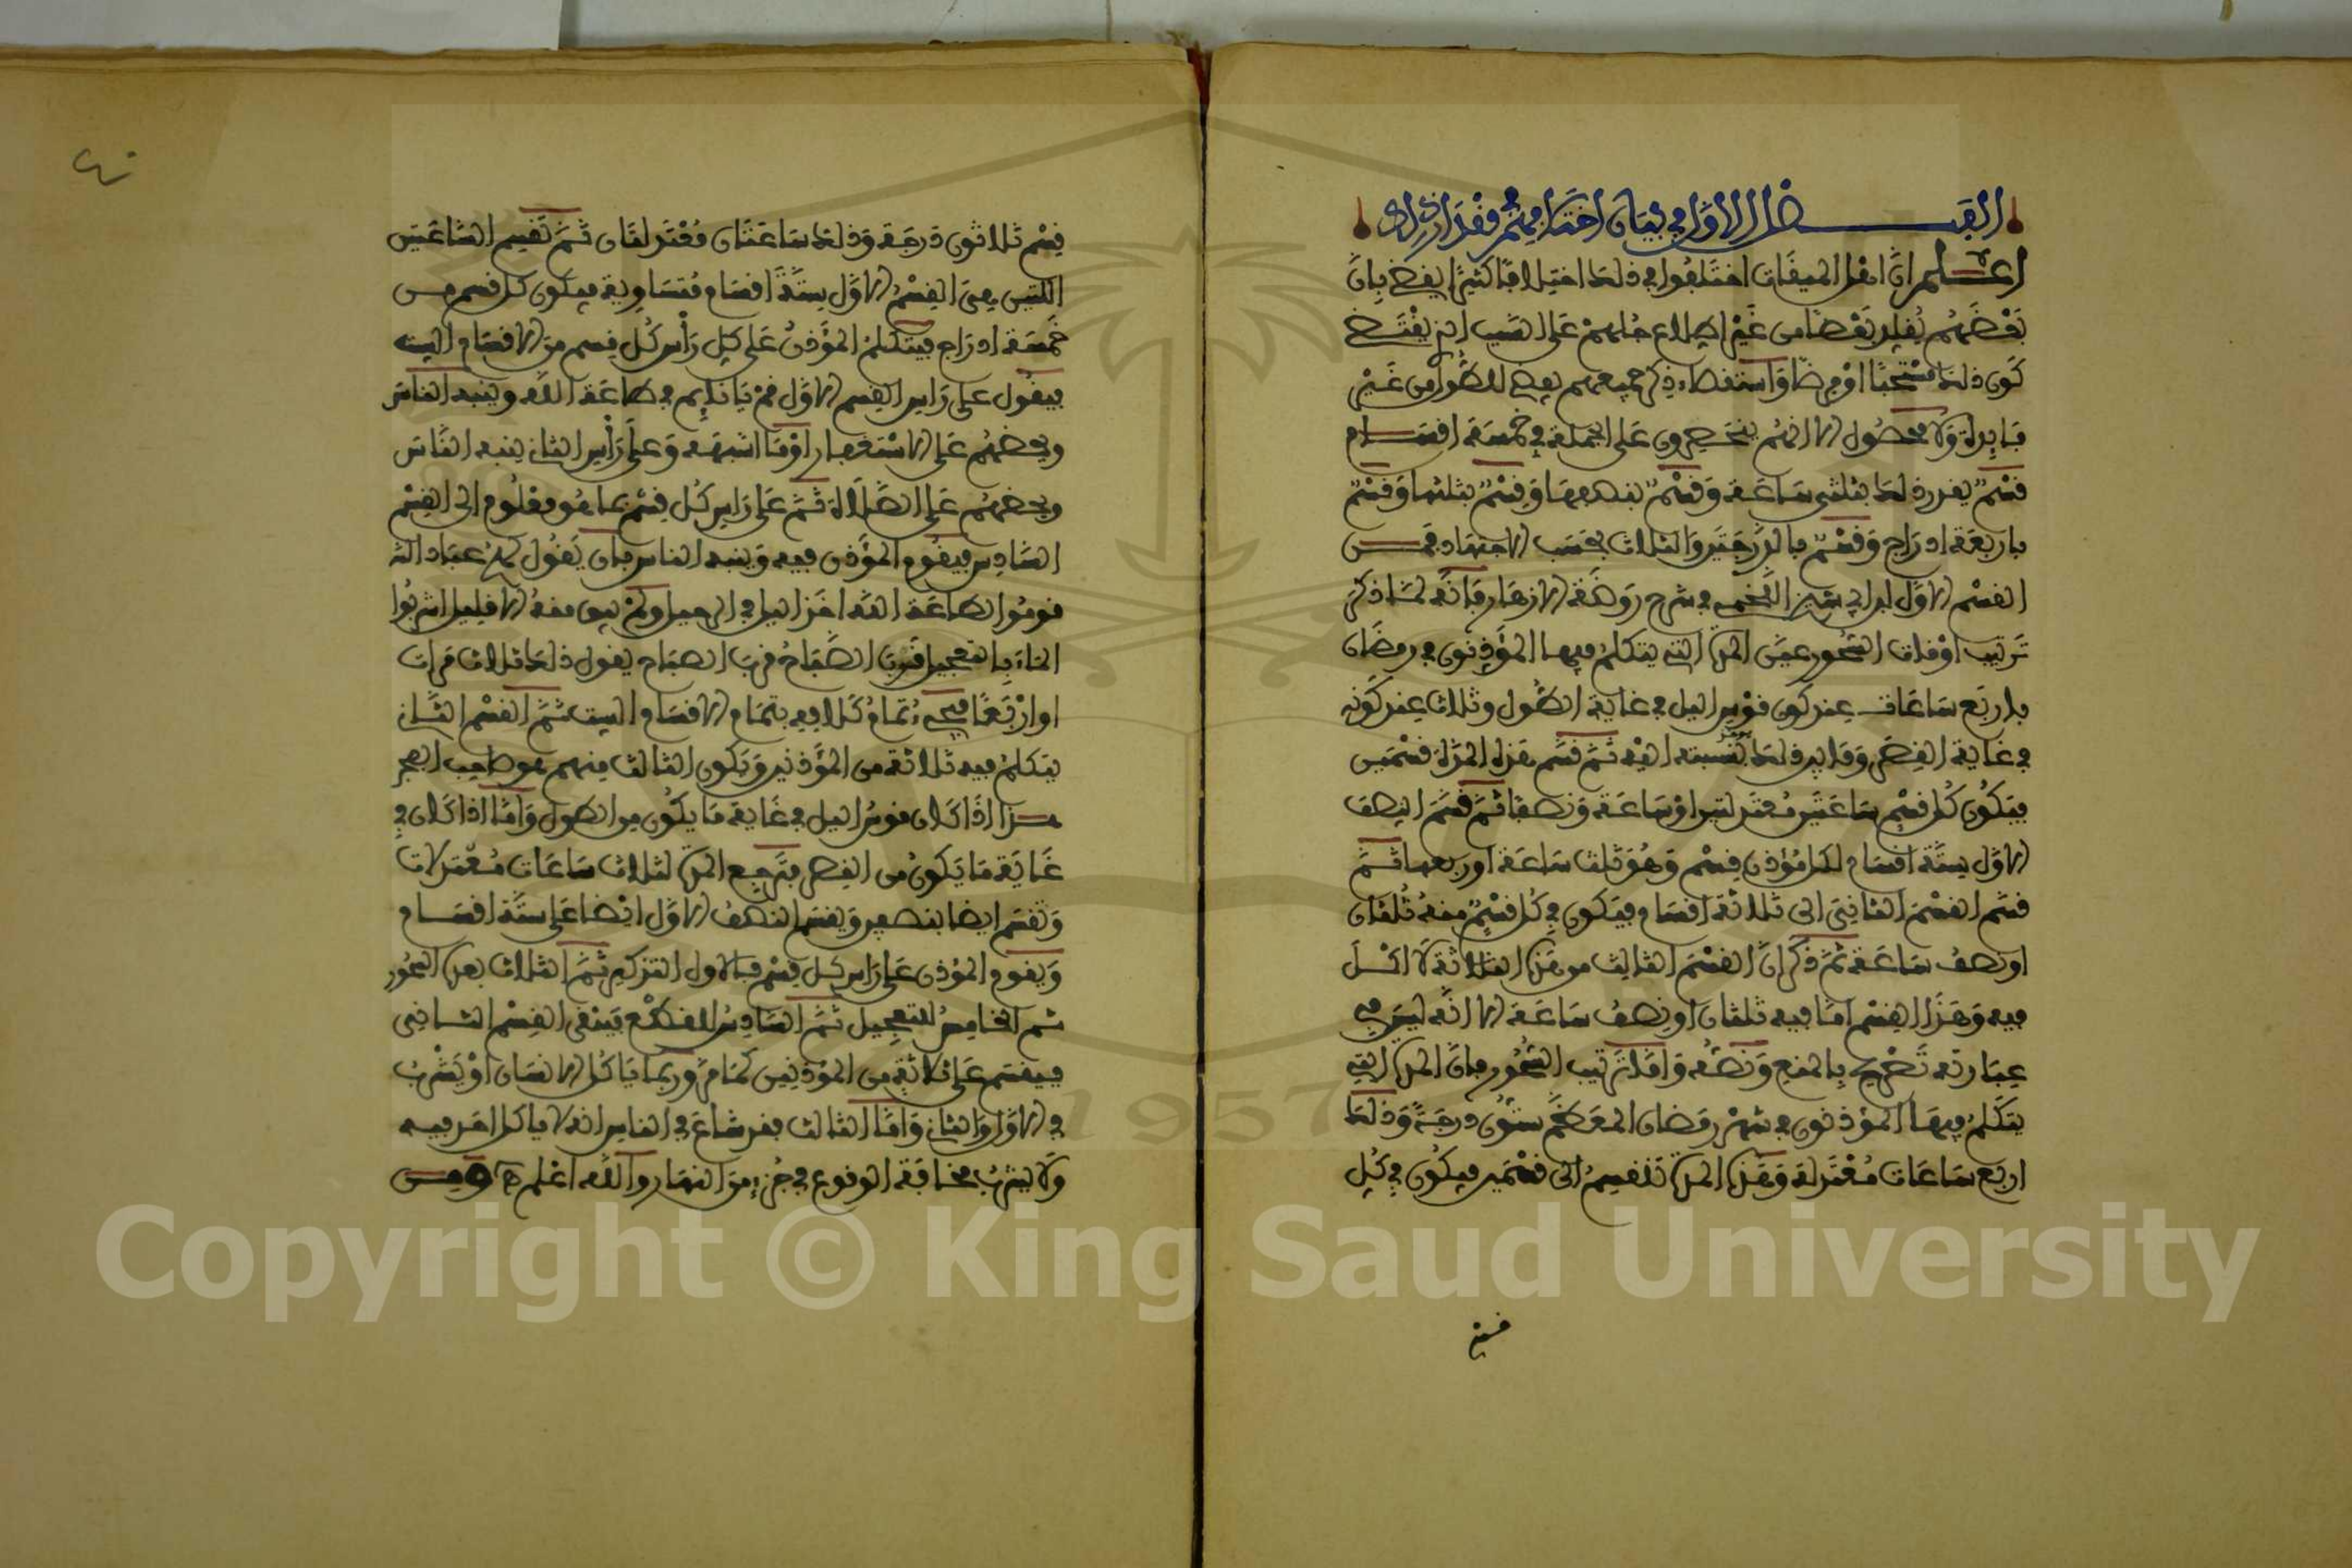 الفصل الاول في بيان اختلافهم في مقدار ذلك
اعلم ان اهل الميقات اختلفوا في ذلك اختلافا كثيرا يقضي بان
بعضهم يقلد بعضا من غير اطلاع منهم على السبب الذي يقتضي
كون ذلك مستحبا او فرضا واستقصاء ذكر جميعهم يفضي للطول من غير
فايدة ولا محصول الا انهم ينحصرون على الجملة في خمسة اقسام
قسم يقدر ذلك بثلثي ساعة وقسم بنصفها وقسم بثلثها وقسم
باربعة ادراج وقسم بالدرجتين والثلاث بحسب الاجتهاد فمن
القسم الاول ابو في شرح روضة الازهار فانه لما ذكر
ترتيب اوقات السحور عين المدة التي يتكلم فيها المؤذنون في رمضان
باربع ساعات عند كون قوس الليل في غاية الطول وثلاث عند كونه
في غاية القصر وقايس ذلك بنسبته اليه ثم قسم هذه المدة قسمين
فيكون كل قسم ساعتين معتدلتين او ساعة ونصفا ثم قسم النصف
الاول ستة اقسام لكل مؤذن قسم وهو ثلث ساعة او ربعها ثم
قسم القسم الثاني الى ثلاثة اقسام فيكون في كل قسم منه ثلثان
او نصف ساعة ثم ذكر ان القسم الثالث من هذه الثلاثة لا اكل
فيه وهذا القسم اما فيه ثلثان او نصف ساعة الا انه ليس في
عبارته تصريح بالمنع ونصه واما ترتيب السحور فان المدة التي
يتكلم فيها المؤذنون في شهر رمضان المعظم ستون درجة وذلك
اربع ساعات معتدلة وهذه المدة تنقسم الى قسمين فيكون في كل
قسم
٤٠
قسم ثلاثون درجة وذلك ساعتان معتدلتان ثم تقسم الساعتين
اللتين هي القسم الاول ستة اقسام متساوية فيكون كل قسم من
خمسة ادراج فيتكلم المؤذن على كل راس كل قسم من الاقسام الستة
فيقول على راس القسم الاول قم يا نايم في طاعة الله وينبه الناس
ويحضهم على الاستغفار او ما اشبهه وعلى راس الثاني ينبه الناس
ويحضهم على الصلاة ثم على راس كل قسم بما هو معلوم الى القسم
السادس فيقوم المؤذن فيه وينبه الناس بان يقول لهم عباد الله
قوموا لطاعة الله اخذ الليل في الرحيل ولم يبق منه الا قليل اشربوا
الماء بالتعجيل قرب الصباح قرب الصباح يقول ذلك ثلاث مرات
او اربعا فيحي تمام كلامه بتمام الاقسام الستة ثم القسم الثاني
يتكلم فيه ثلاثة من المؤذنين ويكون الثالث منهم هو صاحب الفجر
هذا اذا كان قوس الليل في غاية ما يكون من الطول واما اذا كان في
غاية ما يكون من القصر فترجع المدة لثلاث ساعات معتدلات
وتقسم ايضا بنصفين ويقسم النصف الاول ايضا على ستة اقسام
ويقوم المؤذن على راس كل قسم فالاول التذكير ثم الثلاث بعده السحور
ثم الخامس للتعجيل ثم السادس للقطع فيبقى القسم الثاني
فيقسم على ثلاثة من المؤذنين كما مر وربما ياكل الانسان او يشرب
في الاول والثاني واما الثالث فقد شاع في الناس انه لا ياكل احد فيه
ولا يشرب مخافة الوقوع في جزء من النهار والله اعلم ومن
Copyright © King Saud University
1957